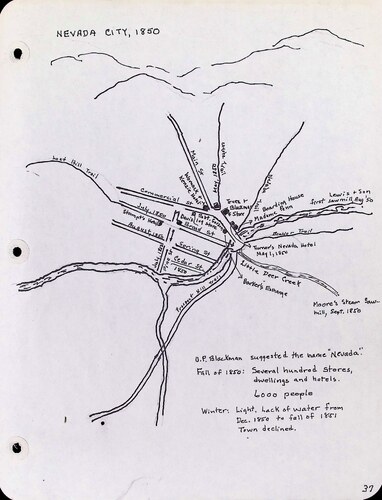 NEVADA CITY, 1850
Lost Hill Trail
Main St.
May, 1850
Commercial St.
July, 1850
August, 1850
Stumpf's Hotel
Broad St
Spring St
Cedar St.
1850
Truex &
Blackman
Store
Boarding House
Madame
Penn
Lewis & Son
first sawmill, Aug '50
Turner's Nevada Hotel
May 1, 1850
Little Deer Creek
Barker's Exchange
Prospect Hill Trail
Moore's Steam Saw-
mill, Sept. 1850
O.P. Blackman suggested the name "Nevada".
Fall of 1850: Several hundred stores,
dwellings and hotels.
6000 people
Winter: Light. Lack of water from
Dec. 1850 to fall of 1851
Town declined.
37